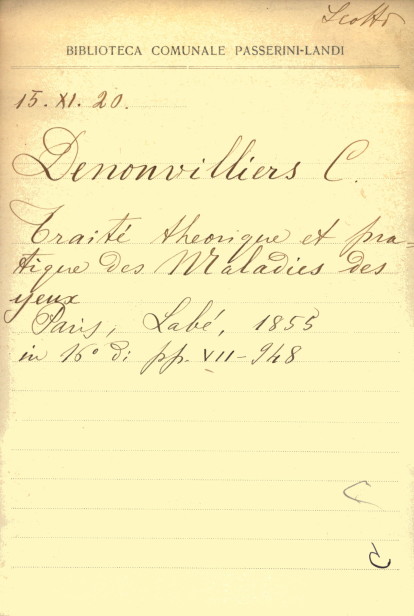 Scotto
BIBLIOTECA COMUNALE PASSERINI-LANDI
15. XI. 20.
Denonvilliers C.
Traité theorique et pra=
tique des Maladies des
yeux
Paris, Labé, 1855
in 16° di pp. VII-948
C